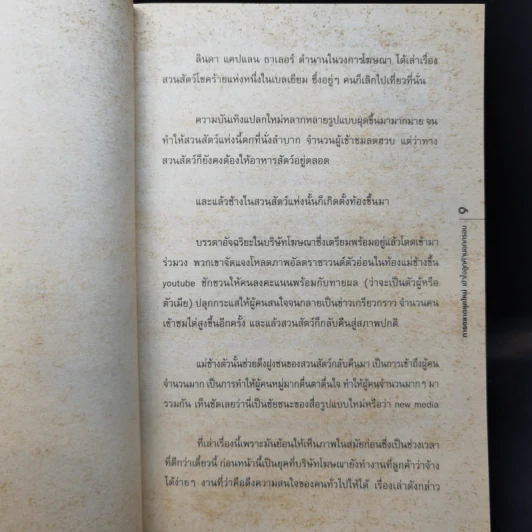 ลินดา แคปแลน ธาเลอร์ ตำนานในวงการโฆษณา ได้เล่าเรื่อง
สวนสัตว์โชคร้ายแห่งหนึ่งในเบลเยียม ซึ่งอยู่ๆ คนก็เลิกไปเที่ยวที่นั่น
ความบันเทิงแปลกใหม่หลากหลายรูปแบบผุดขึ้นมามากมาย จน
ทำให้สวนสัตว์แห่งนี้ตกที่นั่งลำบาก จำนวนผู้เข้าชมลดฮวบ แต่ว่าทาง
สวนสัตว์ก็ยังคงต้องให้อาหารสัตว์อยู่ตลอด
และแล้วช้างในสวนสัตว์แห่งนั้นก็เกิดตั้งท้องขึ้นมา
บรรดาอัจฉริยะในบริษัทโฆษณาซึ่งเตรียมพร้อมอยู่แล้วโดดเข้ามา
ร่วมวง พวกเขาจัดแจงโหลดภาพอัลตราซาวนด์ตัวอ่อนในท้องแม่ช้างขึ้น
youtube ชักชวนให้คนลงคะแนนพร้อมกับทายผล (ว่าจะเป็นตัวผู้หรือ
ตัวเมีย) ปลุกกระแสให้ผู้คนสนใจจนกลายเป็นข่าวเกรียวกราว จำนวนคน
เข้าชมไต่สูงขึ้นอีกครั้ง และแล้วสวนสัตว์ก็กลับคืนสู่สภาพปกติ
แม่ช้างตัวนั้นช่วยดึงฝูงชนของสวนสัตว์กลับคืนมา เป็นการเข้าถึงผู้คน
จำนวนมาก เป็นการทำให้ผู้คนหมู่มากตื่นตาตื่นใจ ทำให้ผู้คนจำนวนมากๆ มา
รวมกัน เห็นชัดเลยว่านี่เป็นชัยชนะของสื่อรูปแบบใหม่หรือว่า new media
ที่เล่าเรื่องนี้เพราะมันย้อนให้เห็นภาพในสมัยก่อนซึ่งเป็นช่วงเวลา
ที่ดีกว่าเดี๋ยวนี้ ก่อนหน้านี้เป็นยุคที่บริษัทโฆษณายังทำงานที่ลูกค้าว่าจ้าง
ได้ง่ายๆ งานที่ว่าคือดึงความสนใจของคนทั่วไปให้ได้ เรื่องเล่าดังกล่าว
9
การตลาดยุคใหม่